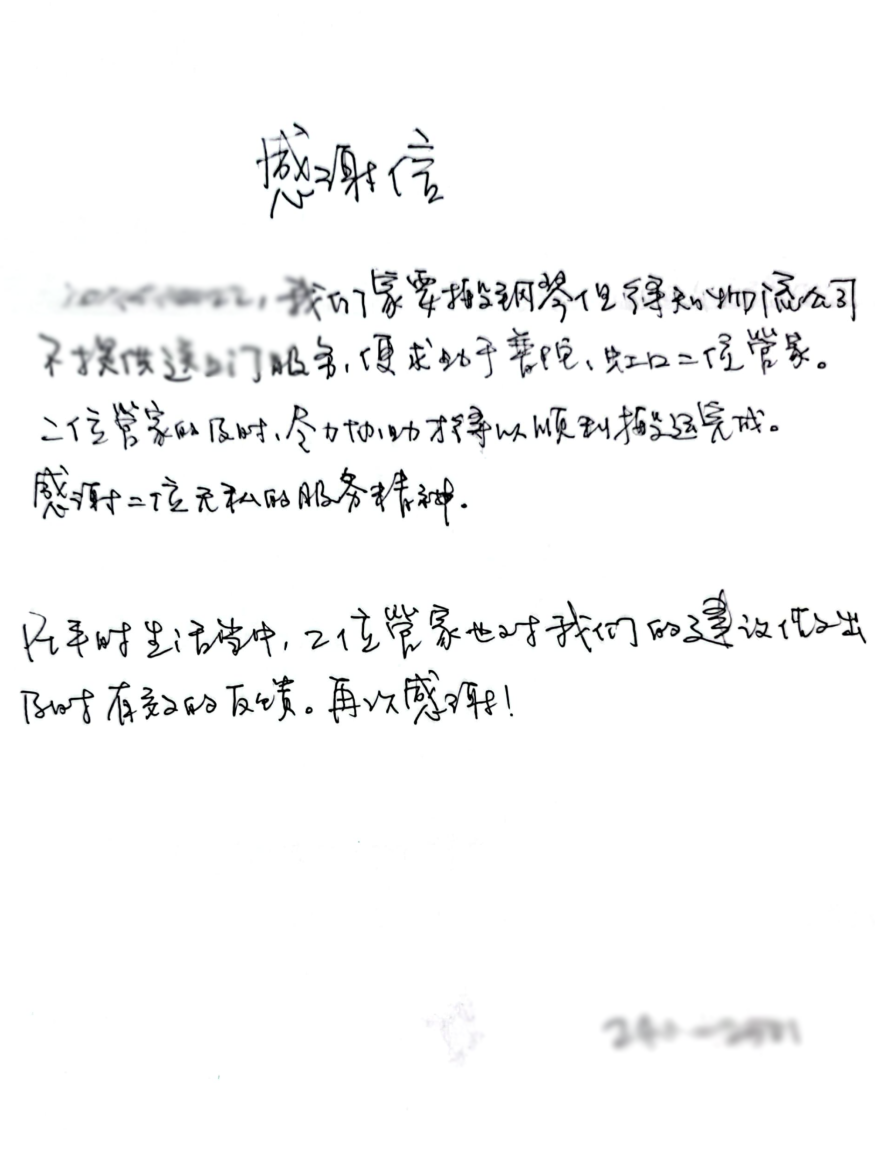 感谢信
我们家要搬钢琴但得知物流公司
不提供送上门服务,便求助于普陀、虹口二位管家。
二位管家的及时、尽力协助才得以顺利搬运完成。
感谢二位无私的服务精神.
在平时生活当中,二位管家也对我们的建议作出
及时有效的反馈。再次感谢!